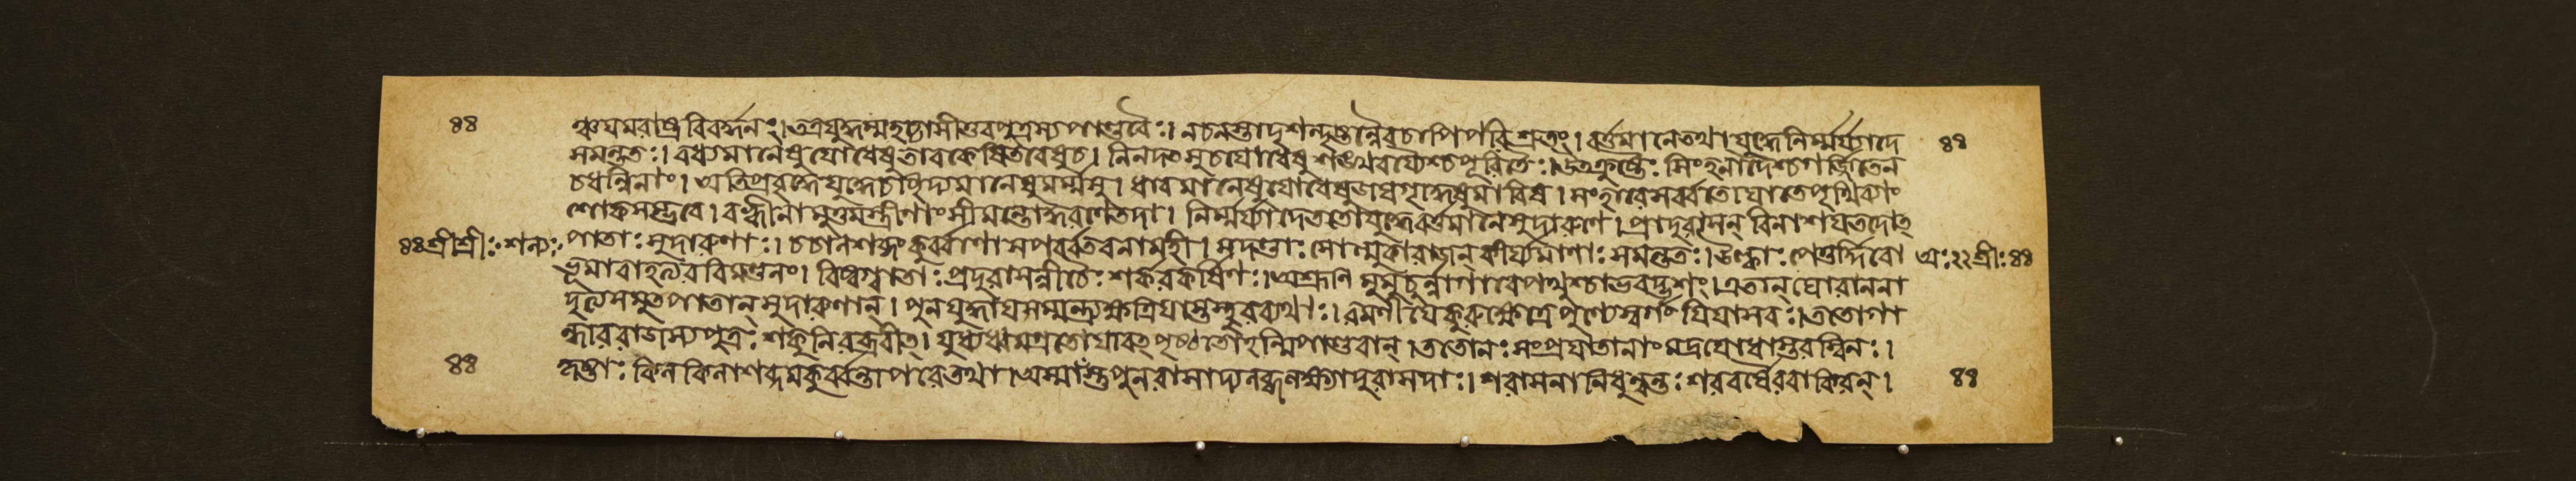 ৪৪ ঞ্চযমরাষ্ট্রবিবর্দ্ধনঃ।তত্রযুদ্ধম্মহচ্চাসীত্তবপুত্রস্যপাণ্ডবৈঃ। নচনস্তাদৃশন্দৃষ্টন্নৈবচাপিপরিশ্রুতং। বর্ত্তমানেতথাযুদ্ধেনির্ম্মর্য্যাদে ৪৪
সমন্ততঃ। বধ্যমানেষুযোধেষুতাবকেষ্বিতরেষুচ। নিনদৎসুচযোধেষুশঙ্খবর্য্যৈশ্চপূরিতৈঃ।উৎক্রুষ্টৈঃ সিংহনাদৈশ্চগর্জ্জিতেন
চধন্বিনাং। অতিপ্রবৃদ্ধেযুদ্ধেচছিদ্যমানেষুমর্ম্মসু। ধাবমানেষুযোধেষুজয়গৃদ্ধেষুমারিষ। সংহারেসর্ব্বতোঘাতেপৃথিব্যাং
শোকসম্ভবে। বহ্বীনামুত্তমস্ত্রীণাংসীমন্তোদ্ধরণেতদা। নির্ম্মর্য্যাদেততোযুদ্ধেবর্ত্তমানেসুদারুণে। প্রাদুরাসন্ বিনাশায়তদোৎ
৪৪শ্রীশ্রীঃ শল্যঃ পাতাঃ সুদারুণাঃ। চচালশব্দংকুর্ব্বাণাসপর্ব্বতবনামহী। সদণ্ডাঃ সোল্মুকারাজন্ কীর্য্যমাণাঃ সমন্ততঃ।উল্কাঃ পেতুর্দ্দিবো অঃ২২শ্রীঃ৪৪
ভূমাবাহত্যরবিমণ্ডলং। বিষ্বগ্বাতাঃ প্রাদুরাসন্নীচৈঃ শর্করকর্ষিণঃ।অশ্রূণি মুমুচুর্ন্নাগাবেপথুশ্চাভবদ্ভৃশং।এতান্ ঘোরাননা
দৃত্যসমুৎপাতান্ সুদারুণান্। পুনর্যুদ্ধায়সম্মন্ত্র্যক্ষত্রিয়াস্তস্তুরব্যথাঃ। রমণীয়েকুরুক্ষেত্রেপুণ্যেস্বর্গং যিয়াসবঃ।ততোগা
ন্ধাররাজস্যপুত্রঃ শকুনিরব্রবীৎ। যুধ্যধ্বমগ্রতোযাবৎ পৃষ্ঠতোহন্মিপাণ্ডবান্।ততোনঃ সংপ্রযাতানাং মদ্রযোধাস্তরস্বিনঃ।
৪৪ হৃষ্টাঃ কিলকিলাশব্দমকুর্ব্বন্তাপরেতথা।অস্মাংস্তুপুনরাসাদ্যলব্ধলক্ষ্যাদুরাসদাঃ। শরাসনানিধুন্বন্তঃ শরবর্ষৈরবাকিরন্। ৪৪